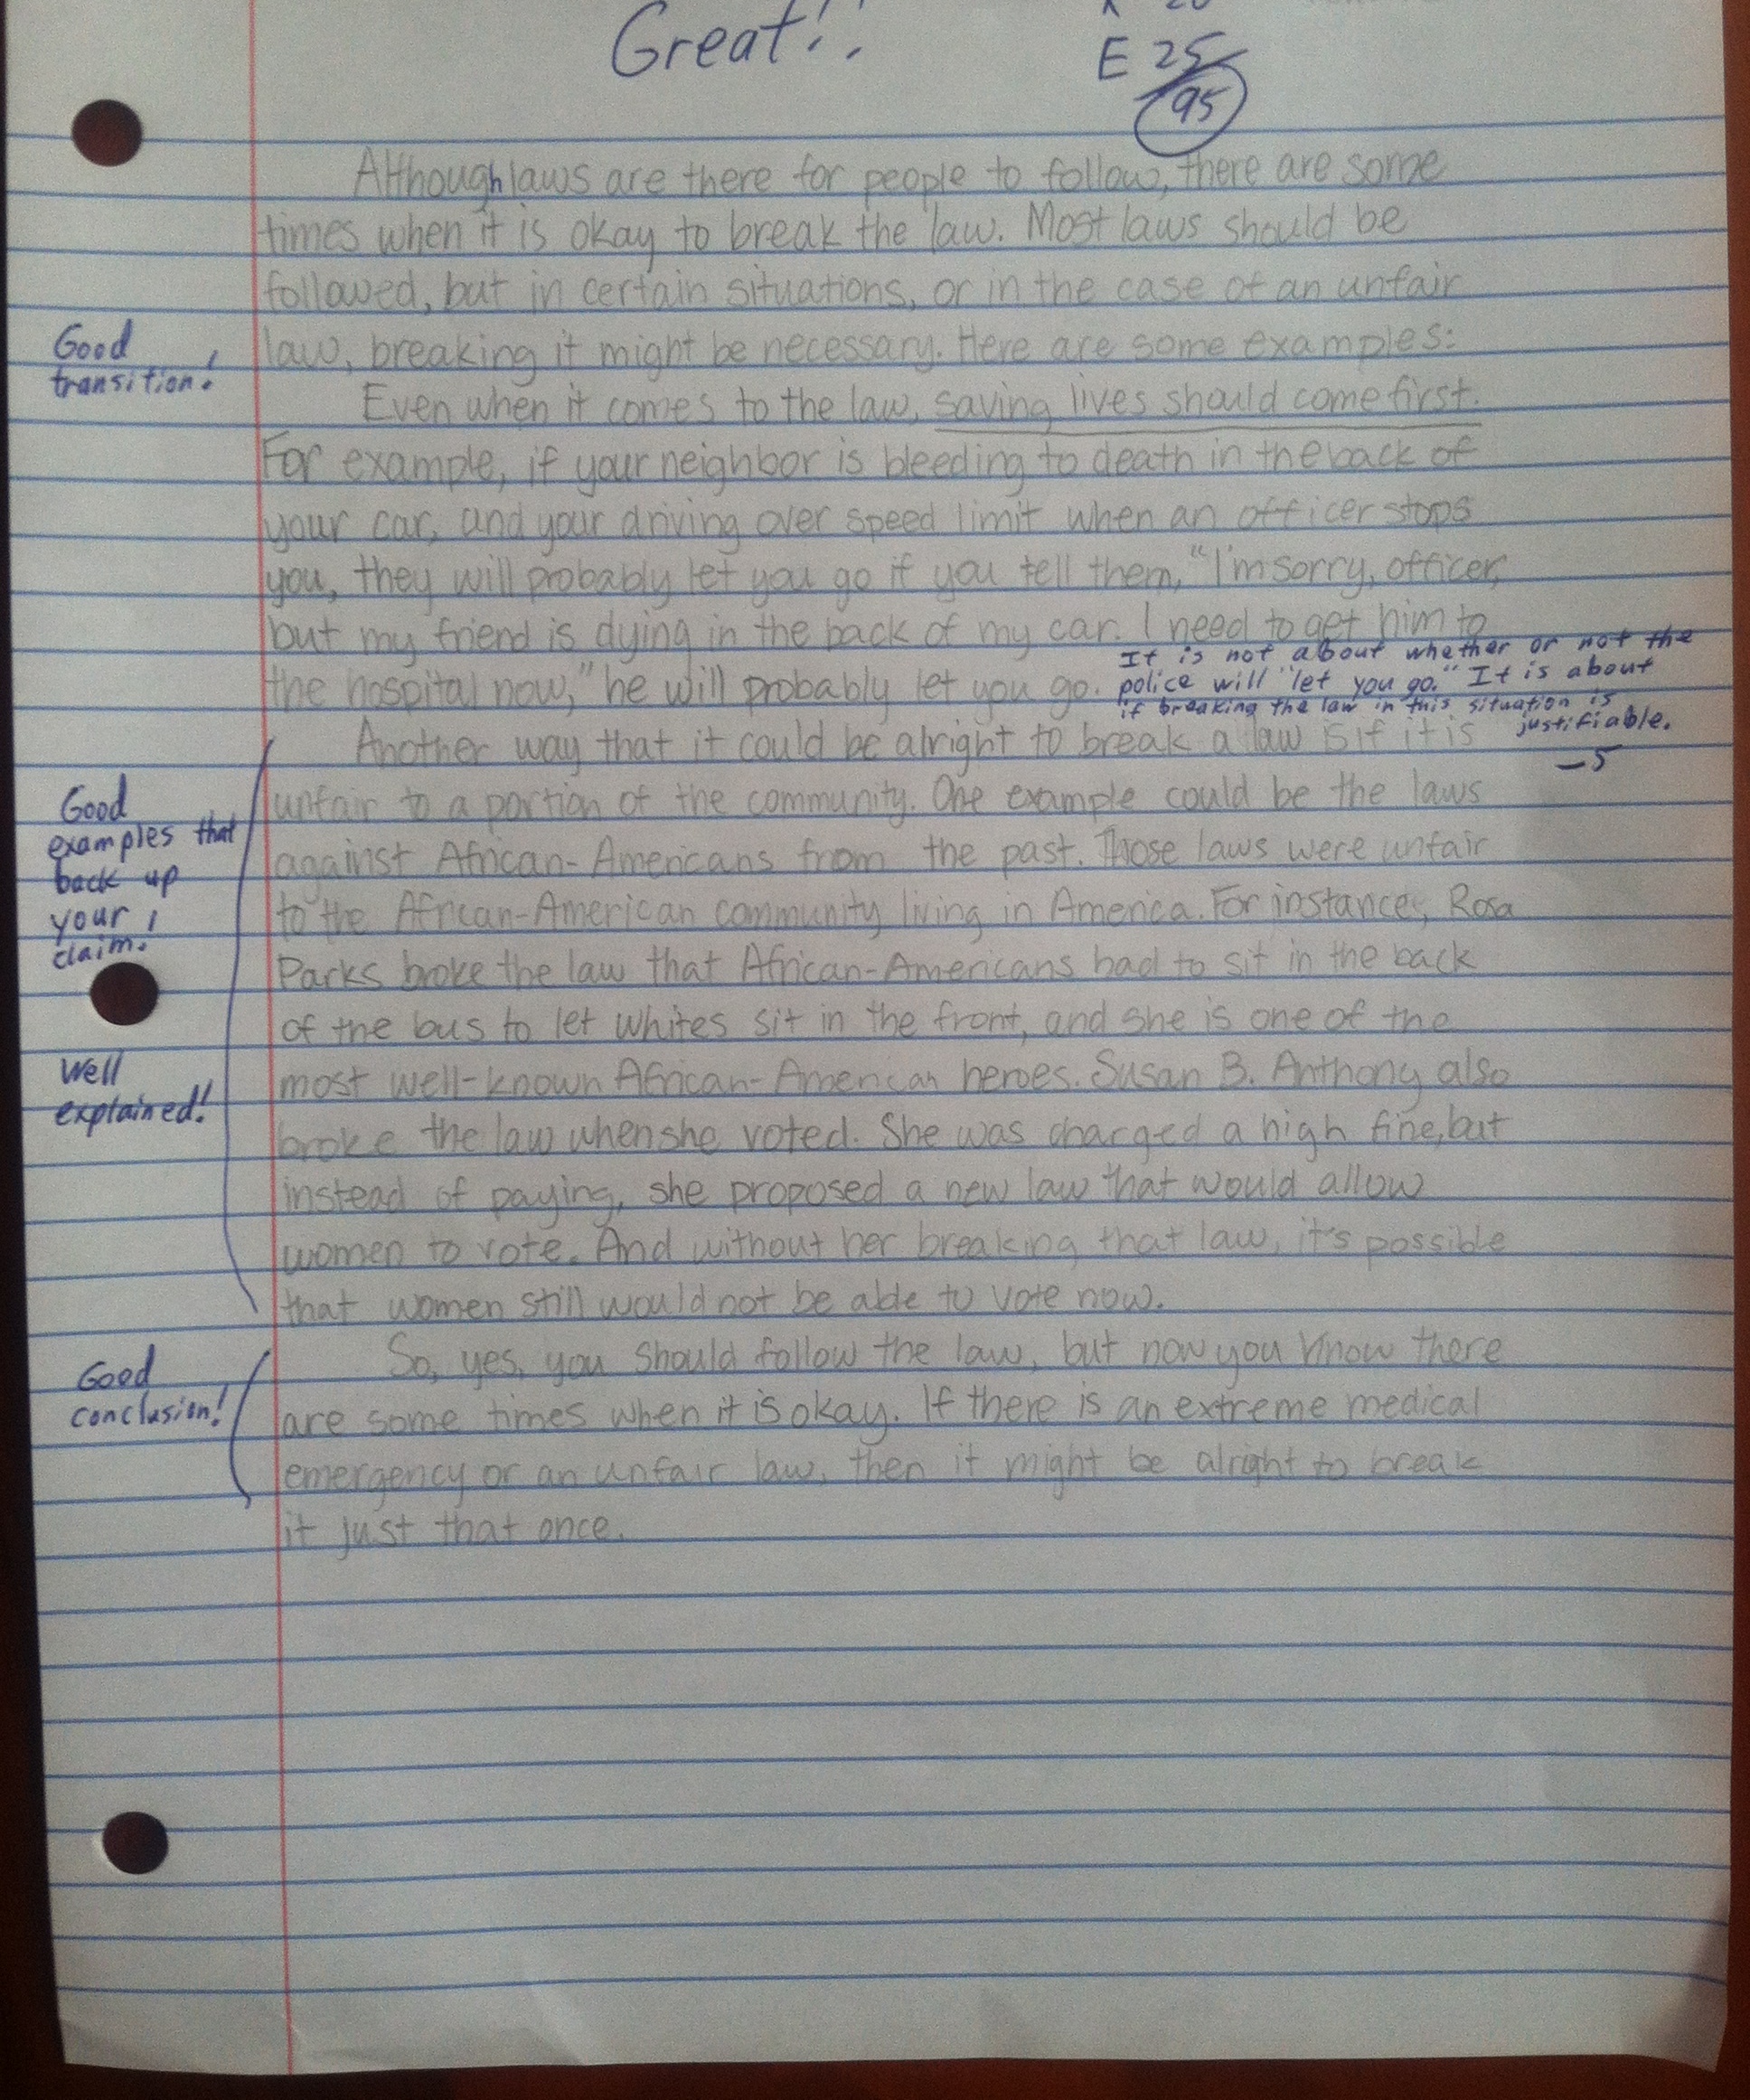 Great!!
E 25
95
Although laws are there for people to follow, there are some
times when it is okay to break the law. Most laws should be
followed, but in certain situations, or in the case of an unfair
Good
transition!
law, breaking it might be necessary. Here are some examples:
Even when it comes to the law, saving lives should come first.
For example, if your neighbor is bleeding to death in the back of
your car, and your driving over speed limit when an officer stops
you, they will probably let you go if you tell them, "I'm sorry, officer,
but my friend is dying in the back of my car. I need to get him to
the hospital now," he will probably let you go.
It is not about whether or not the
police will "let you go." It is about
if breaking the law in this situation is
justifiable.
-5
Another way that it could be alright to break a law is if it is
Good
examples that
back up
your
claim!
unfair to a portion of the community. One example could be the laws
against African-Americans from the past. Those laws were unfair
to the African-American community living in America. For instance, Rosa
Parks broke the law that African-Americans had to sit in the back
of the bus to let whites sit in the front, and she is one of the
Well
explained!
most well-known African-American heroes. Susan B. Anthony also
broke the law when she voted. She was charged a high fine, but
instead of paying, she proposed a new law that would allow
women to vote. And without her breaking that law, it's possible
that women still would not be able to vote now.
Good
conclusion!
So, yes, you should follow the law, but now you know there
are some times when it is okay. If there is an extreme medical
emergency or an unfair law, then it might be alright to break
it just that once.